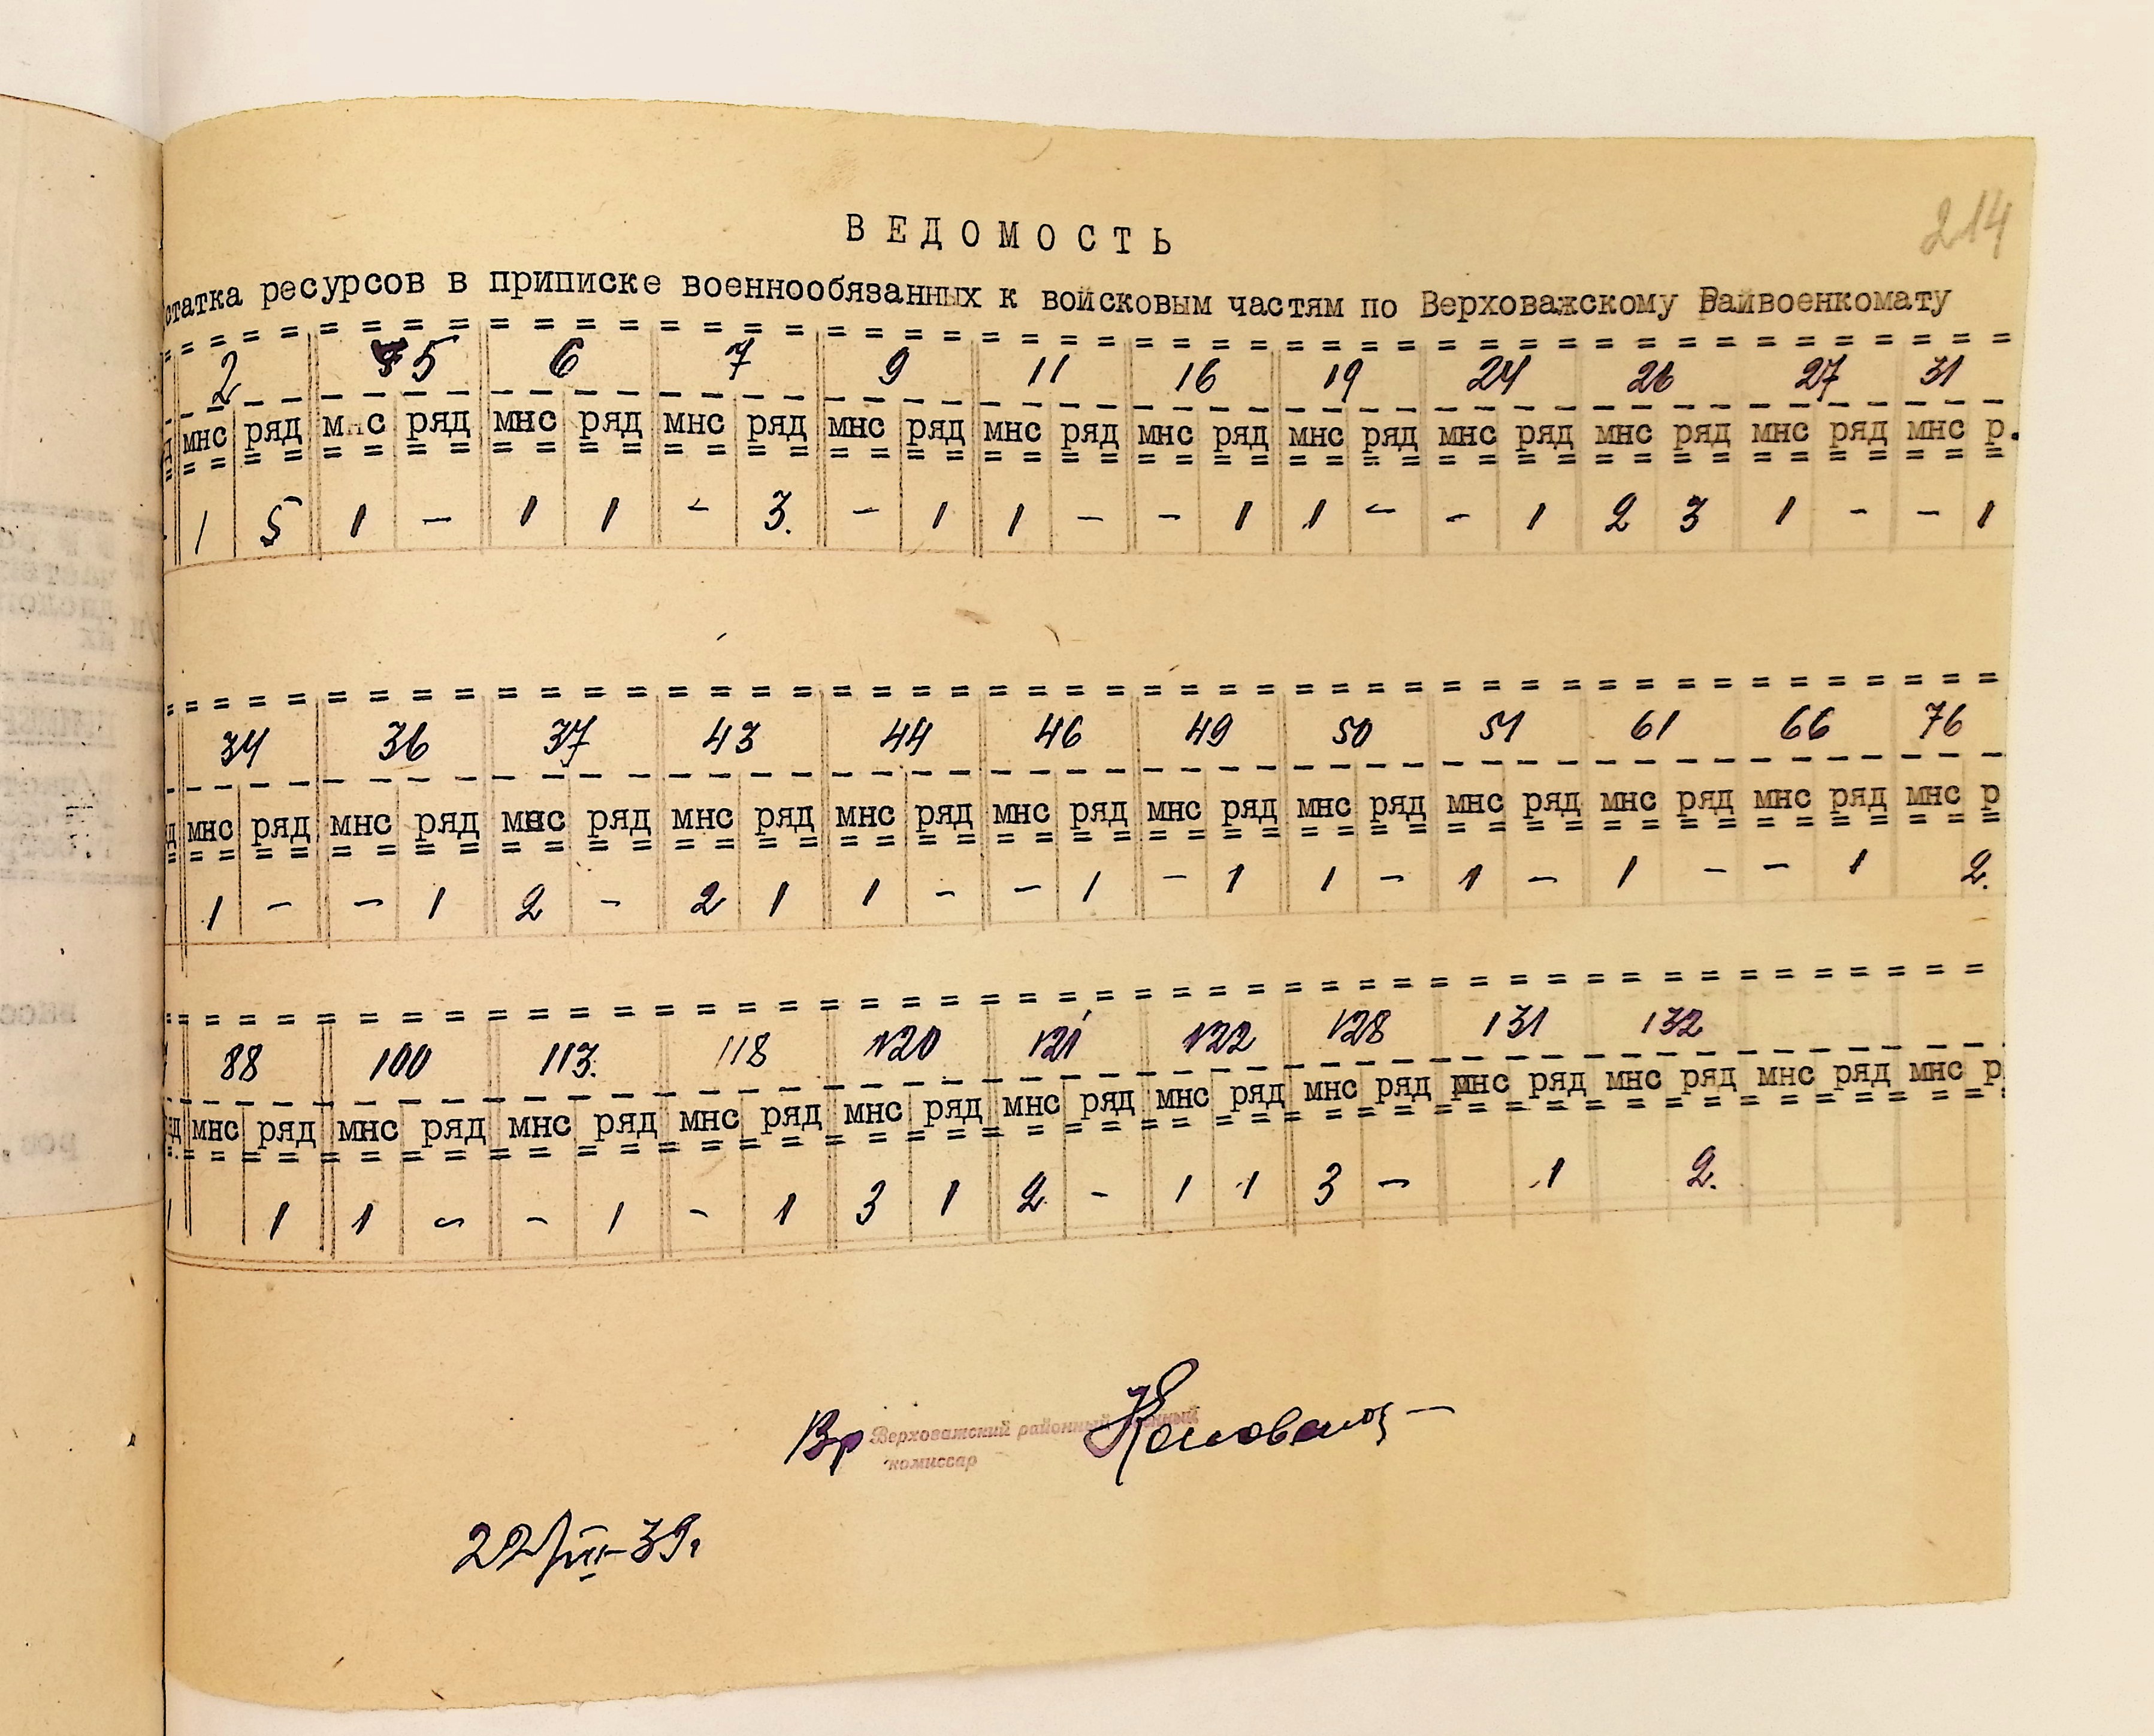 214
ВЕДОМОСТЬ
статка ресурсов в приписке военнообязанных к войсковым частям по Верховажскому Райвоенкомату
2 5 6 7 9 11 16 19 24 26 27 31
д мнс ряд мнс ряд мнс ряд мнс ряд мнс ряд мнс ряд мнс ряд мнс ряд мнс ряд мнс ряд мнс ряд мнс р.
1 5 1 - 1 1 - 3. - 1 1 - - 1 1 - - 1 2 3 1 - - 1
34 36 37 43 44 46 49 50 51 61 66 76
д мнс ряд мнс ряд мнс ряд мнс ряд мнс ряд мнс ряд мнс ряд мнс ряд мнс ряд мнс ряд мнс ряд мнс р
1 - - 1 2 - 2 1 1 - - 1 - 1 1 - 1 - 1 - - 1 2.
88 100 113. 118 120 121 122 128 131 132
д мнс ряд мнс ряд мнс ряд мнс ряд мнс ряд мнс ряд мнс ряд мнс ряд мнс ряд мнс ряд мнс ряд мнс р
1 1 1 - - 1 - 1 3 1 2 - 1 1 3 - 1 2.
Вр Верховажский районный военный
комиссар
22/III-39г